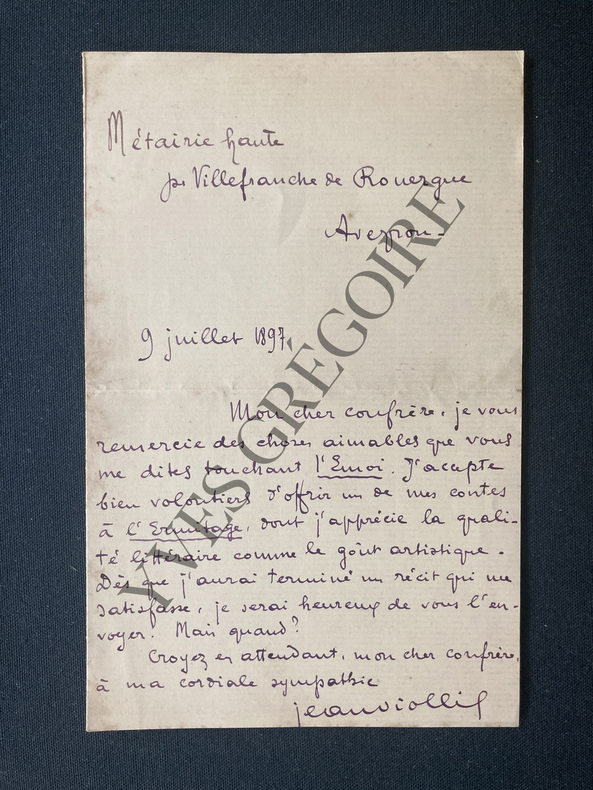 Métairie haute
pr Villefranche de Rouergue
Aveyron
9 juillet 1897
Mon cher confrère, je vous
remercie des choses aimables que vous
me dites touchant l'Emoi. J'accepte
bien volontiers d'offrir un de mes contes
à l'Ermitage, dont j'apprécie la quali-
té littéraire comme le goût artistique.
Dès que j'aurai terminé un récit qui me
satisfasse, je serai heureux de vous l'en-
voyer. Mais quand?
Croyez en attendant, mon cher confrère,
à ma cordiale sympathie
jean viollis
YVES GRÉGOIRE